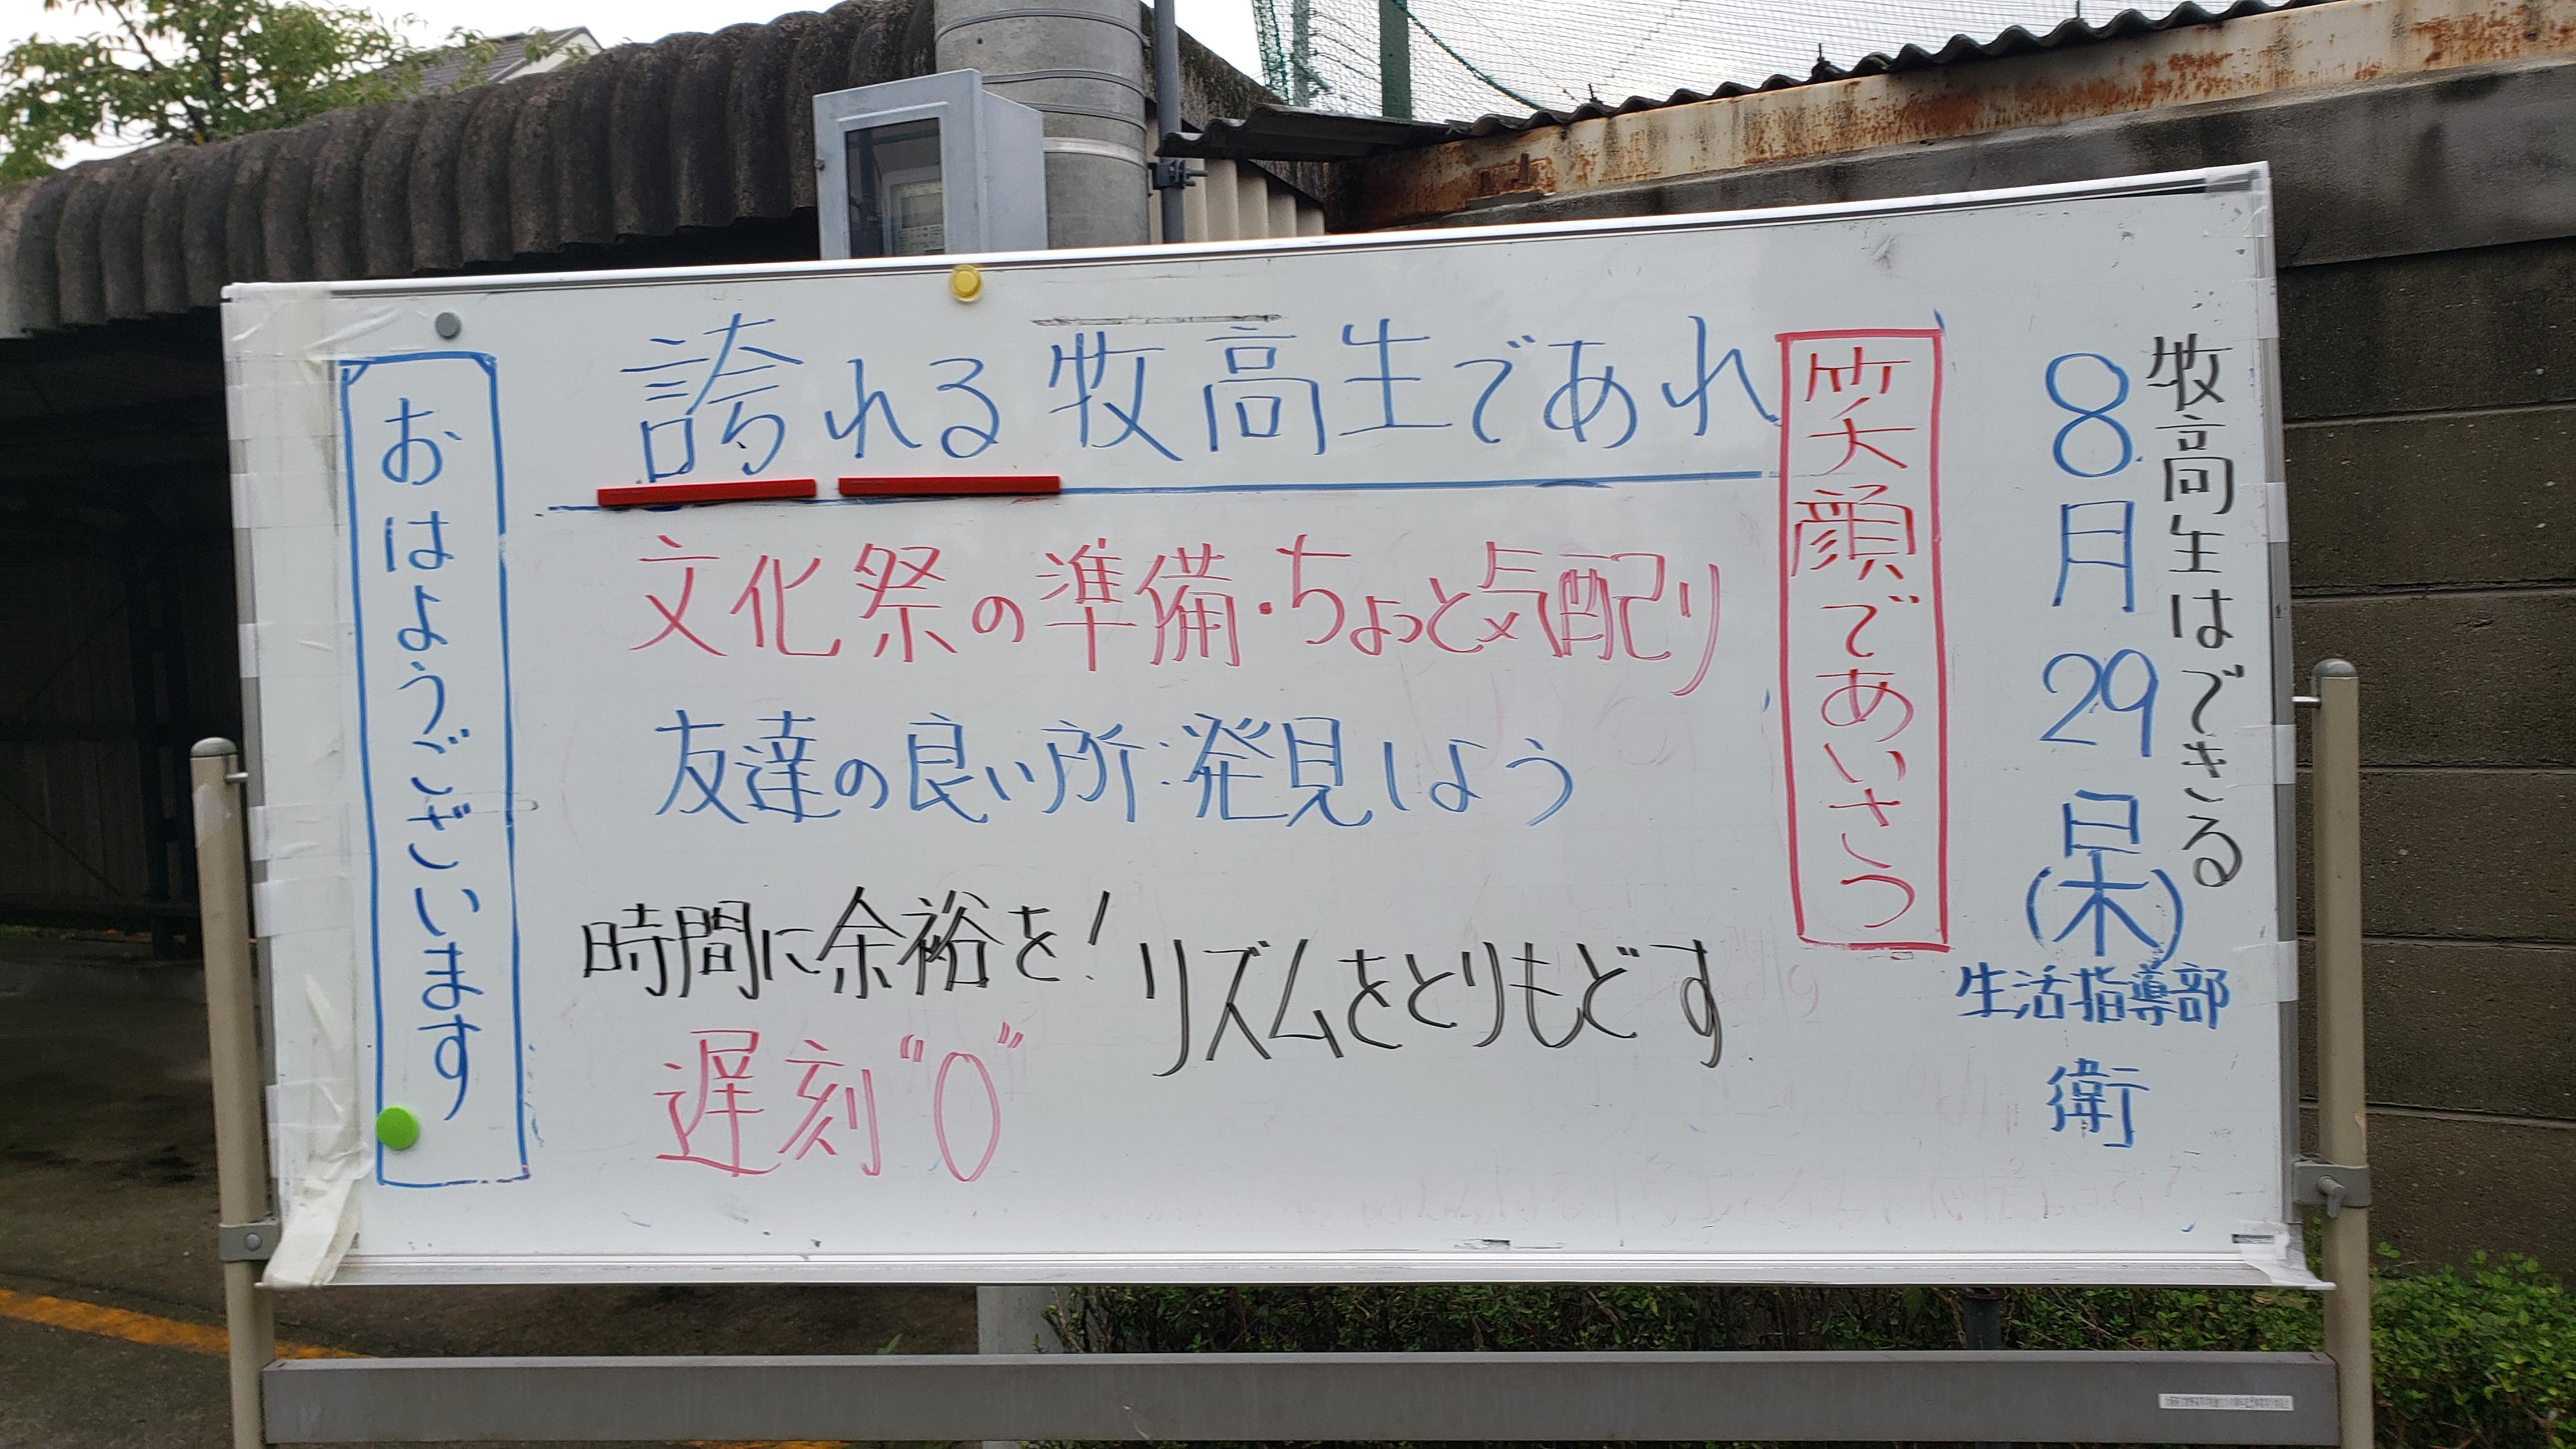 牧高生はできる
8月29日(木)
生活指導部
衛
笑顔であいさつ
誇れる牧高生であれ
文化祭の準備・ちょっと気配り
友達の良い所:発見しよう
時間に余裕を!
リズムをとりもどす
遅刻“0”
おはようございます